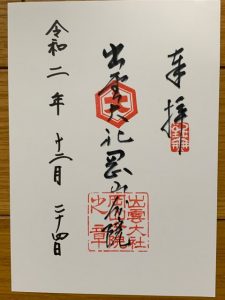 奉拝
出雲大社岡山分院
令和二年十二月二十四日
出雲大社
之章